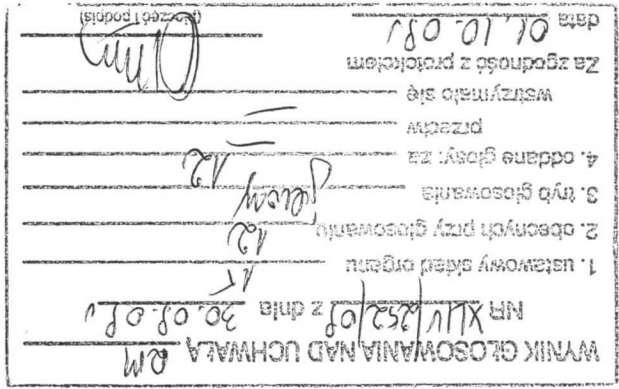 WYNIK GŁOSOWANIA NAD UCHWAŁĄ RM
NR XLIV/252/09 z dnia 30.09.09r
1. ustawowy skład organu 15
2. obecnych przy głosowaniu 12
3. tryb głosowania jawny
4. oddane głosy: za 12
przeciw —
wstrzymało się —
Za zgodność z protokołem
data 01.10.09r
(pieczęć i podpis)